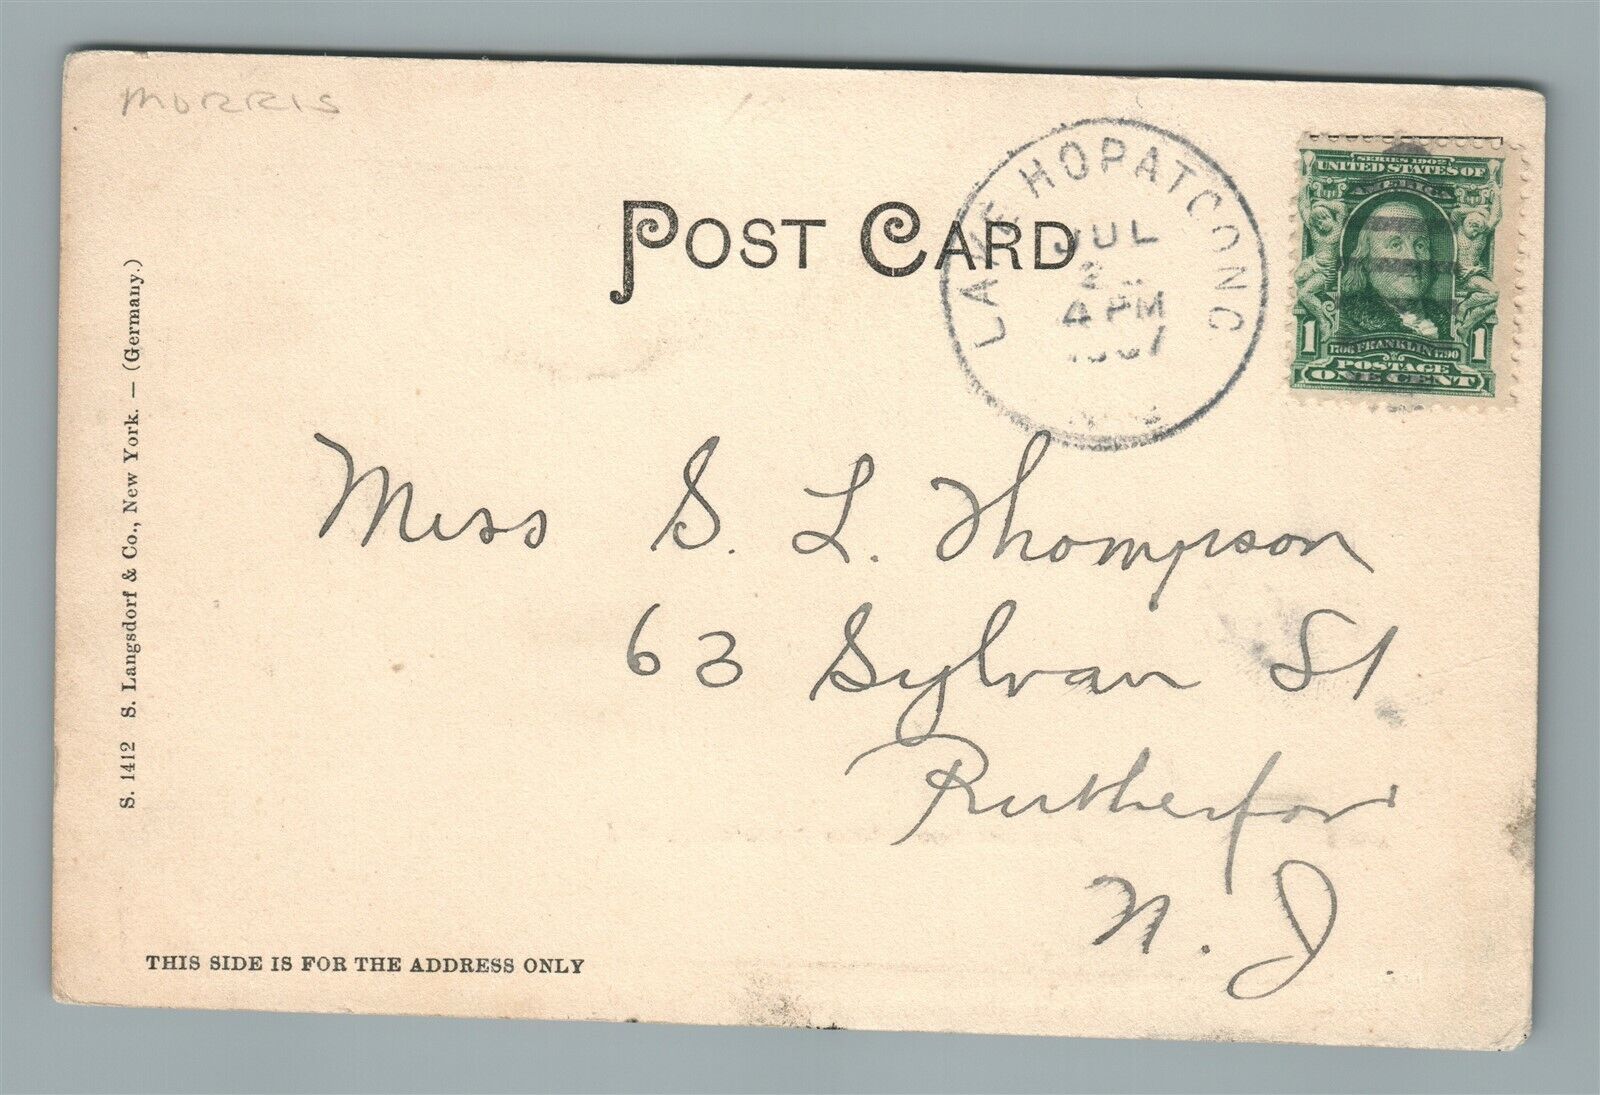 MORRIS
POST CARD
LAKE HOPATCONG
JUL
4 PM
1907
N.J.
SERIES 1902
UNITED STATES OF
AMERICA
1 1706 FRANKLIN 1790 1
POSTAGE
ONE CENT
Miss S. L. Thompson
63 Sylvan St
Rutherford
N. J.
S. 1412 S. Langsdorf & Co., New York. — (Germany.)
THIS SIDE IS FOR THE ADDRESS ONLY